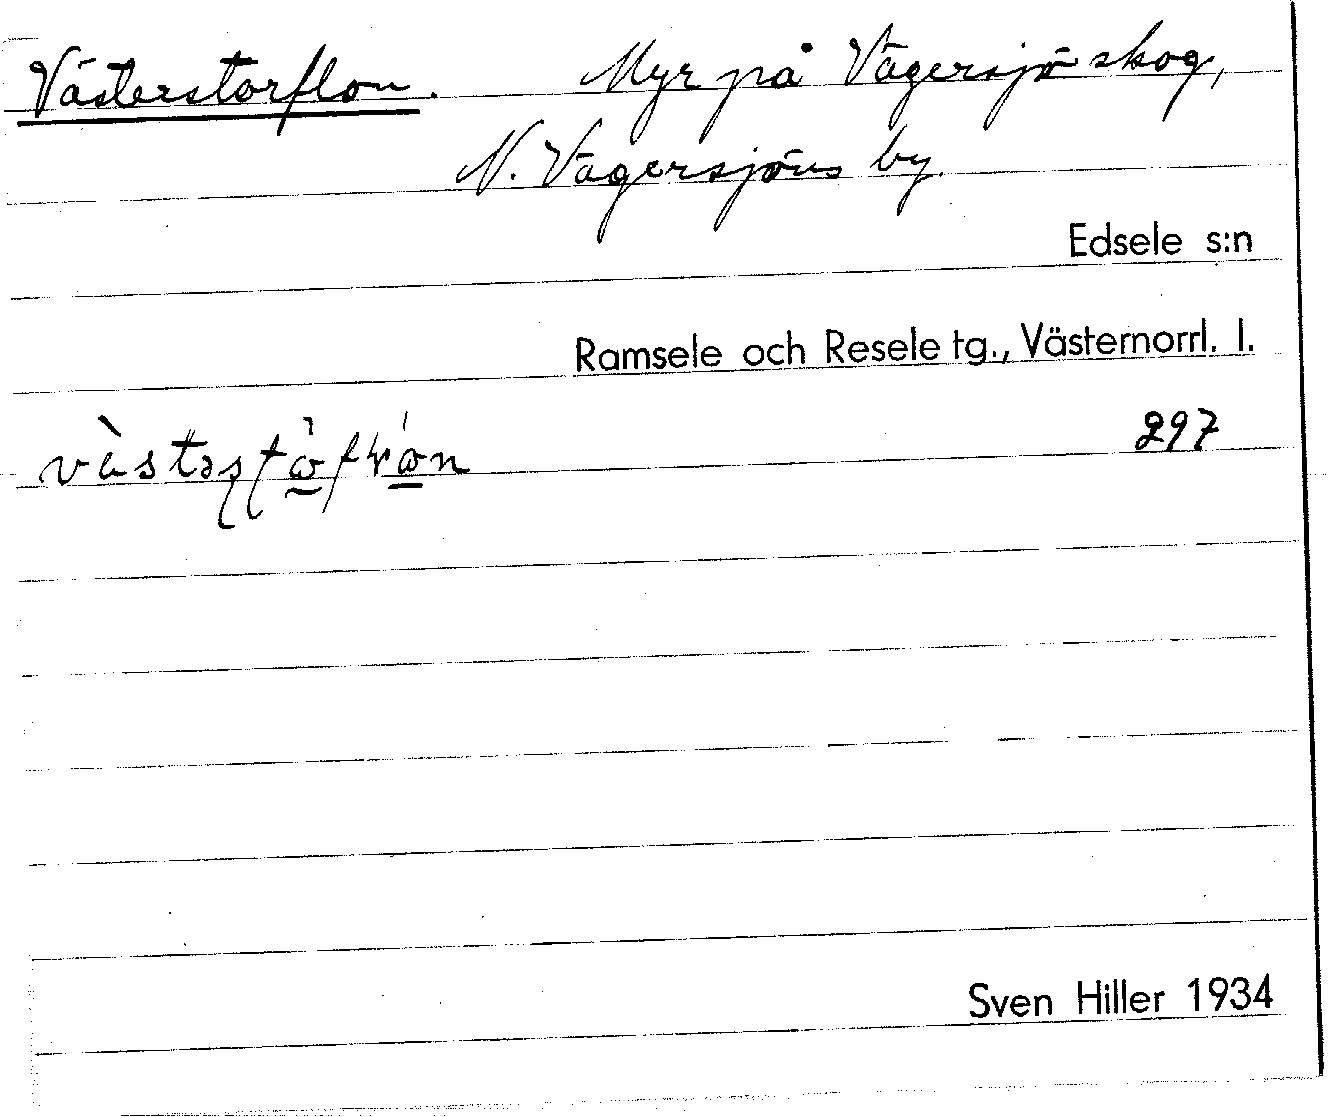 Västerstorflon. Myr på Vägersjö skog,
N. Vägersjöns by.
Edsele s:n
Ramsele och Resele tg., Västernorrl. l.
297
Sven Hiller 1934